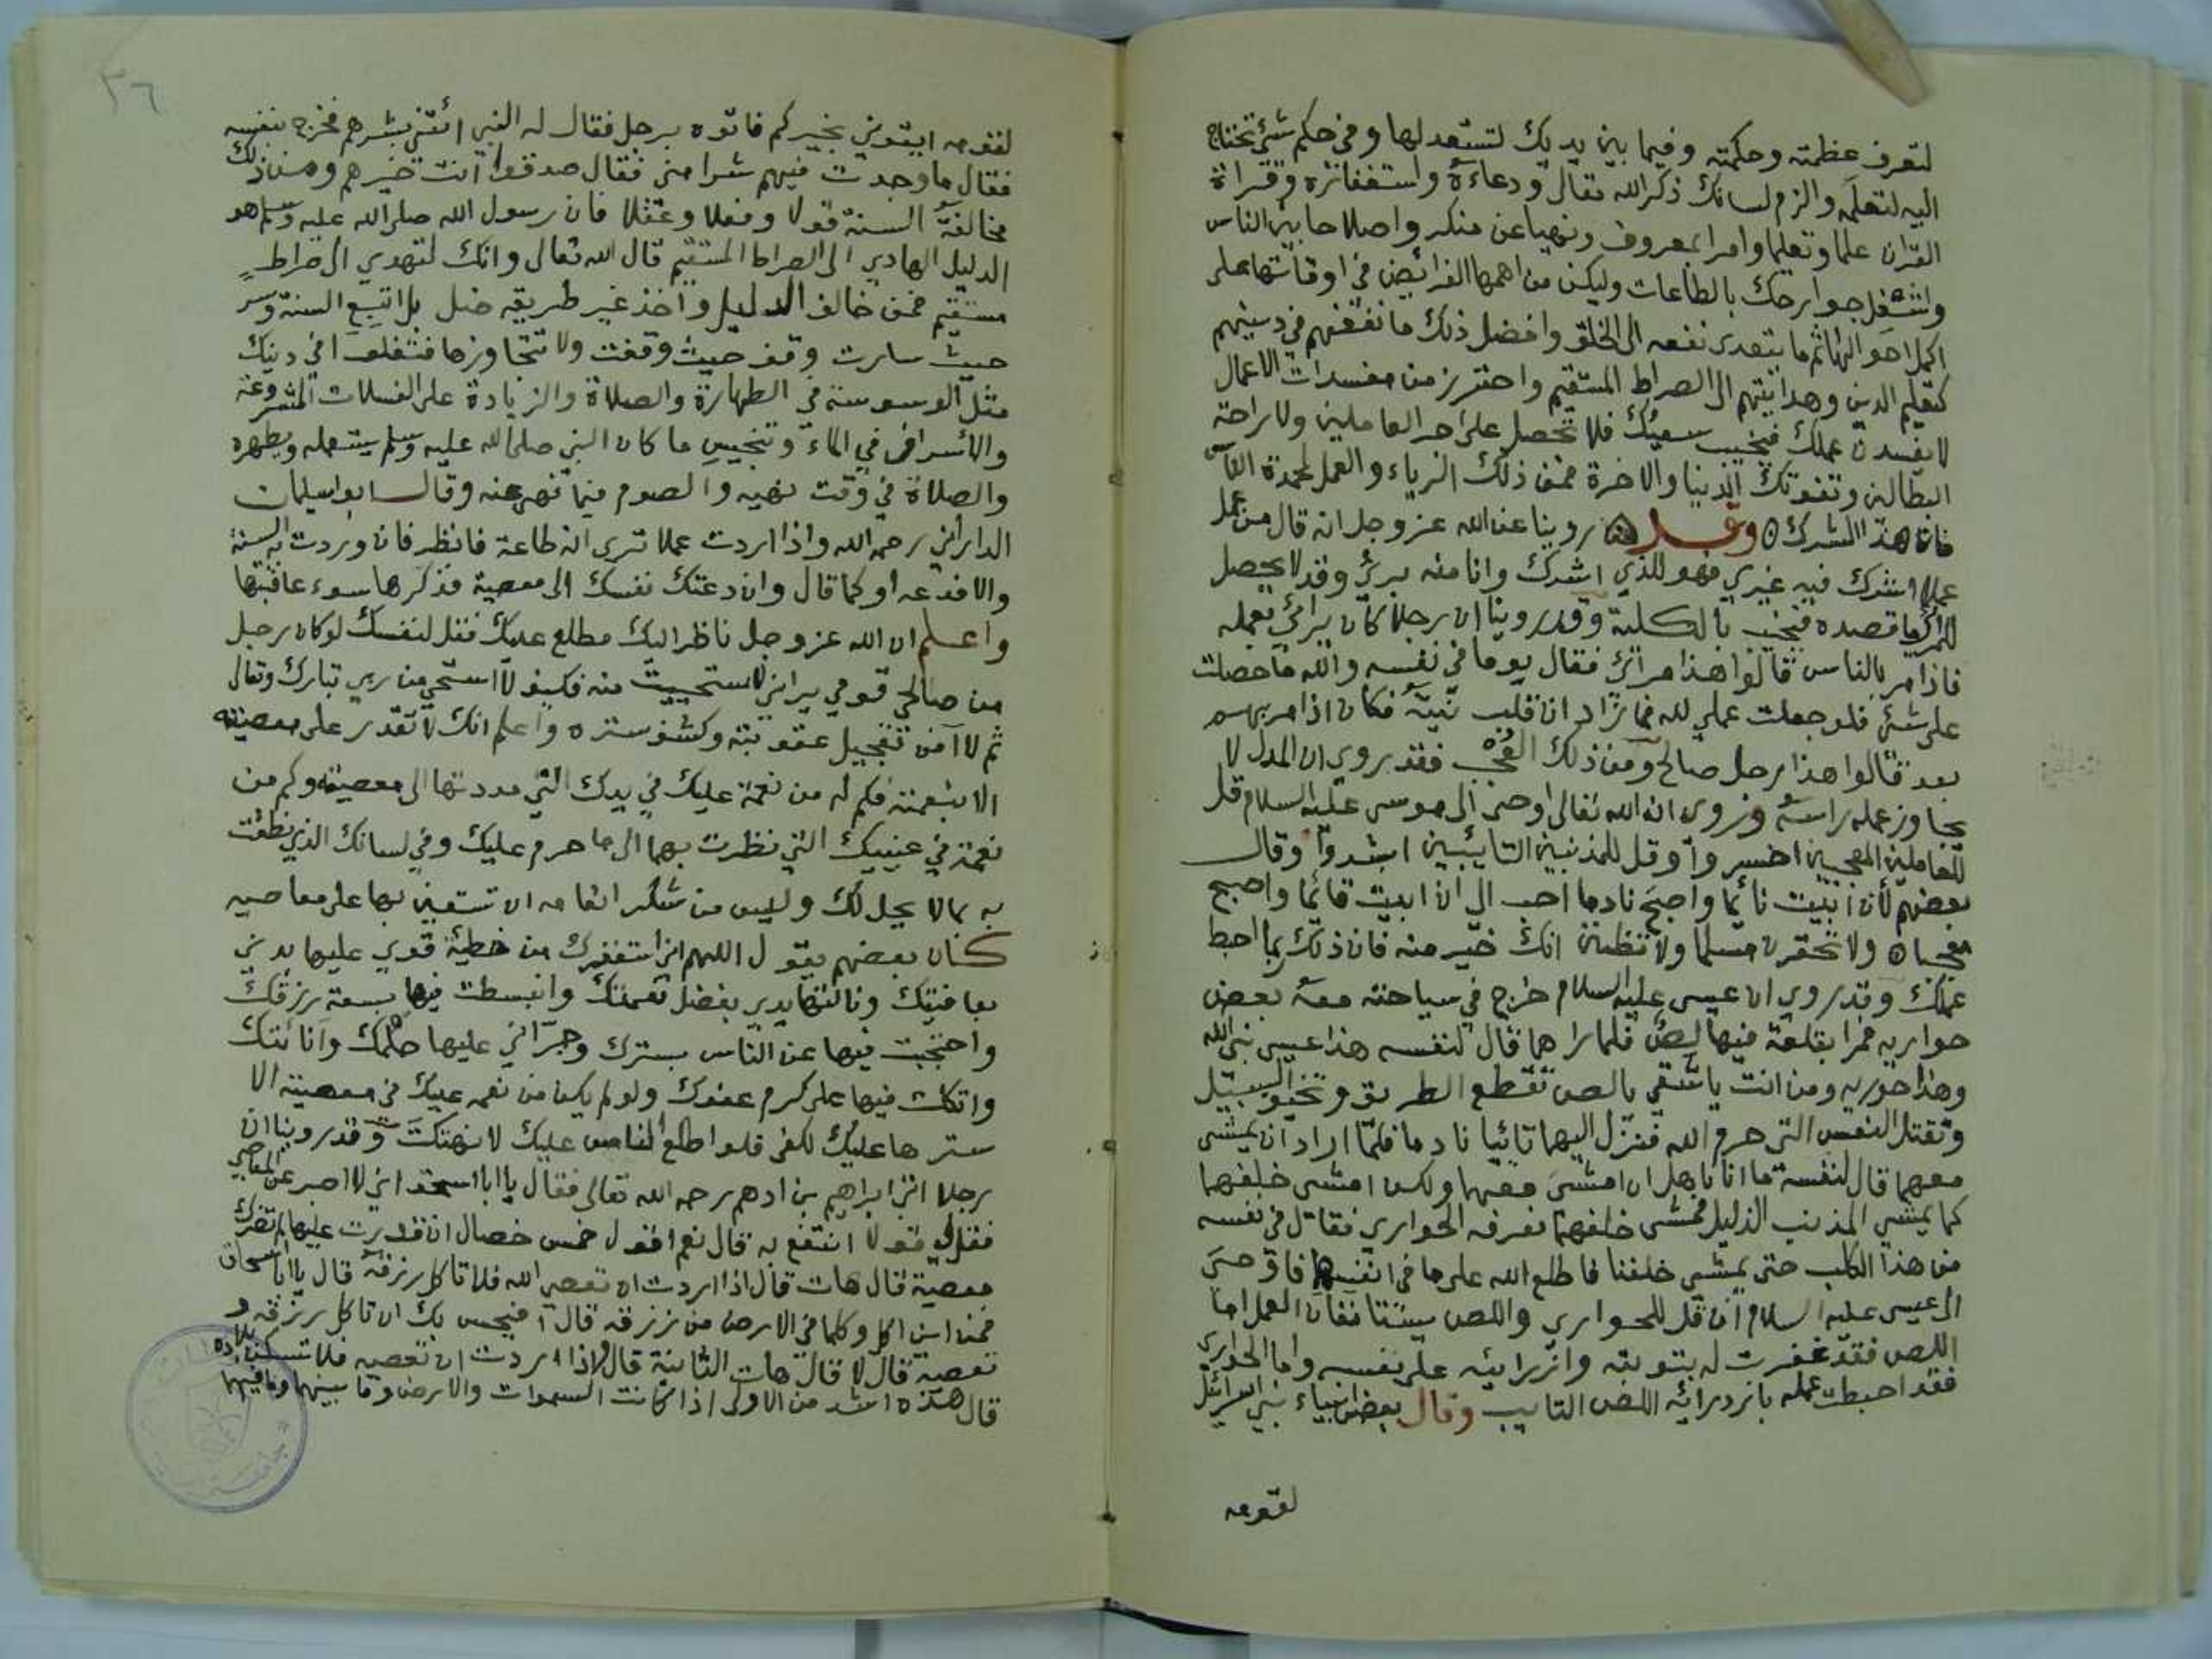 لتعرف عظمته وحكمته وفيما بين يديك لتستعد لها وفي حكم شئ تحتاج
اليه لتعلمه والزم لسانك ذكر الله تعالى ودعاءه واستغفاره وقراءة
القران علما وتعليما وامرا بمعروف ونهيا عن منكر واصلاحا بين الناس
واشغل جوارحك بالطاعات وليكن من اهمها الفرائض في اوقاتها على
اكمل احوالها ثم ما يتعدى نفعه الى الخلق وافضل ذلك ما نفعهم في دينهم
كتعليم الدين وهدايتهم الى الصراط المستقيم واحترز من مفسدات الاعمال
لا يفسدن عملك فيخيب سعيك فلا تحصل على اجر العاملين ولا راحة
البطالين وتفوتك الدنيا والاخرة فمن ذلك الرياء والعمل لمحمدة الناس
فان هذا الشرك وقد روينا عن الله عز وجل انه قال من عمل
عملا اشرك فيه غيري فهو للذي اشرك وانا منه برئ وقد لا يحصل
للمرائي ما قصده فيخيب بالكلية وقد روينا ان رجلا كان يرائي بعمله
فاذا مر بالناس قالوا هذا مرائي فقال يوما في نفسه والله ما حصلت
على شئ فلو جعلت عملي لله فما زاد ان قلب نيته فكان اذا مر بهم
بعد قالوا هذا رجل صالح ومن ذلك العجب فقد روي ان المدل لا
يجاوز عمله راسه وروى ان الله تعالى اوحى الى موسى عليه السلام قل
للعاملين المعجبين اخسروا وقل للمذنبين التايبين ابشروا وقال
بعضهم لأن ابيت نائما واصبح نادما احب الي ان ابيت قائما واصبح
معجبا ولا تحقرن مسلما ولا تظنن انك خير منه فان ذلك ربما احبط
عملك وقد روي ان عيسى عليه السلام خرج في سياحته معه بعض
حواريه فمرا بقلعة فيها لص فلما راهما قال لنفسه هذا عيسى نبي الله
وهذا حوريه ومن انت يا شقي يا لص تقطع الطريق وتخيف السبيل
وتقتل النفس التي حرم الله فنزل اليهما تائبا نادما فلما اراد ان يمشي
معهما قال لنفسه ما انا باهل ان امشى معهما ولكن امشي خلفهما
كما يمشي المذنب الذليل فمشى خلفهما فعرفه الحواري فقال في نفسه
من هذا الكلب حتى يمشي خلفنا فاطلع الله على ما في انفسهما فاوحى
الى عيسى عليه السلام ان قل للحواري واللص يستانفان العمل اما
اللص فقد غفرت له بتوبته وازرائه على نفسه واما الحواري
فقد احبطت عمله بازدرائه اللص التايب وقال بعض انبياء بني اسرائيل
لقومه
٣٦
لقومه ايتوني بخيركم فاتوه برجل فقال له النبي ائتني بشرهم فخرج بنفسه
فقال ما وجدت فيهم شرا مني فقال صدقوا انت خيرهم ومن ذلك
مخالفة السنة قولا وفعلا وعقلا فان رسول الله صلى الله عليه وسلم هو
الدليل الهادي الى الصراط المستقيم قال الله تعالى وانك لتهدي الى صراط
مستقيم فمن خالف الدليل واخذ غير طريقه ضل بل اتبع السنة وسر
حيث سارت وقف حيث وقفت ولا تتجاوزها فتغلوا في دينك
مثل الوسوسة في الطهارة والصلاة والزيادة على الغسلات المشروعة
والاسراف في الماء وتنجيس ما كان النبي صلى الله عليه وسلم يستعمله ويطهره
والصلاة في وقت نهيه والصوم فيما نهى عنه وقال ابو سليمان
الداراني رحمه الله واذا اردت عملا ترى انه طاعة فانظر فان وردت به السنة
والا فدعه او كما قال وان دعتك نفسك الى معصية فذكرها سوء عاقبتها
واعلم ان الله عز وجل ناظر اليك مطلع عليك فقل لنفسك لو كان رجل
من صالحي قومي يراني لاستحييت منه فكيف لا استحي من ربي تبارك وتعالى
ثم لا آمن تعجيل عقوبته وكشف ستره واعلم انك لا تقدر على معصيته
الا بنعمته فكم له من نعمة عليك في يدك التي مددتها الى معصيته وكم من
نعمة في عينيك التي نظرت بهما الى ما حرم عليك وفي لسانك الذي نطقت
به بما لا يحل لك وليس من شكر انعامه ان تستعين بها على معاصيه
كان بعضهم يقول اللهم اني استغفرك من خطيئة قوي عليها بدني
بعافيتك ونالتها يدي بفضل نعمتك وانبسطت فيها بسعة رزقك
واحتجبت فيها عن الناس بسترك وجراني عليها حلمك واناتك
واتكلت فيها على كرم عفوك ولو لم يكن من نعمه عليك في معصيته الا
سترها عليك لكفى فلو اطلع الناس عليك لانهتكت وقد روينا ان
رجلا اتى ابراهيم بن ادهم رحمه الله تعالى فقال يا ابا اسحق اني لا اصبر عن المعاصي
فقل لي قولا انتفع به قال نعم اقول خمس خصال ان قدرت عليها لم تضرك
معصية قال هات قال اذا اردت ان تعصي الله فلا تاكل رزقه قال يا ابا اسحاق
فمن اين اكل وكلما في الارض من رزقه قال افيحسن بك ان تاكل رزقه و
تعصيه قال لا قال هات الثانية قال واذا اردت ان تعصيه فلا تسكن بلاده
قال هذه اشد من الاولى اذا كانت السموات والارض وما بينهما وما فيهما